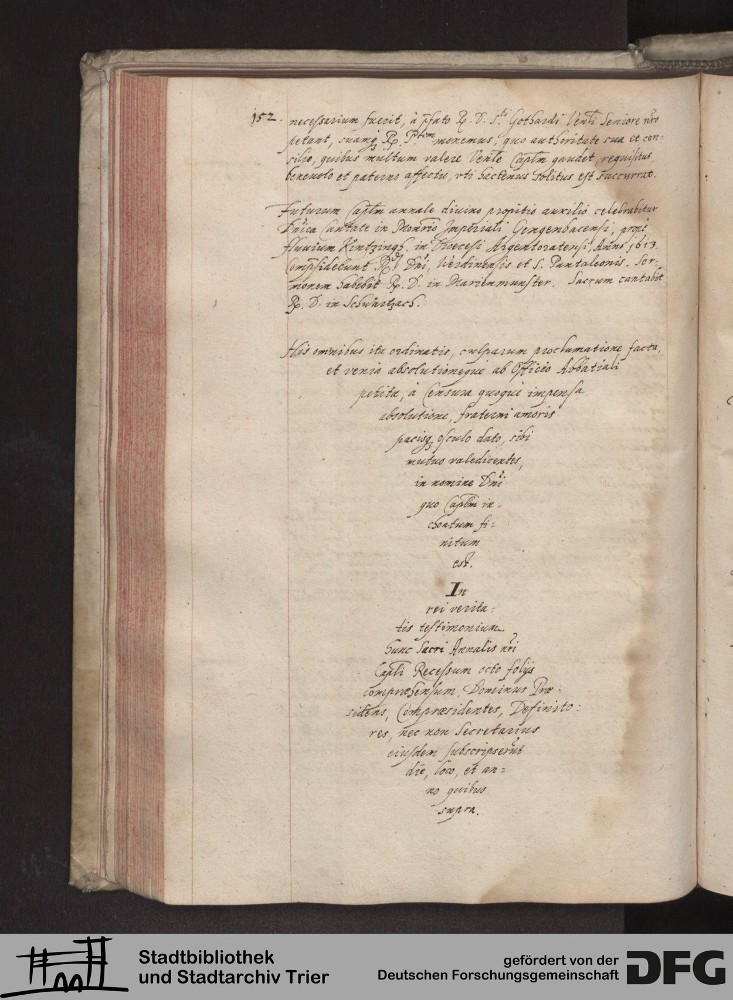 152.
necessarium fuerit, à p̃fato R. D. S.ti Gothardi Ven̄li Seniore nr̄o
petant, suamq̨ R. P.tem monemus, quo authoritate sua et con:
silio, quibus multum valere Ven̄le Cap̄lm gaudet, requisitus
beneuolo et paterno affectu, vti hactenus solitus est succurrat.
Futurum Cap̄lm annale diuino propitio auxilio celebrabitur
Dn̄ica Cantate in Mon̄rio Imperiali Gengenbacensi, prope
fluuium Kintzingh, in Dioecesi Argentoratensi, Anno 1613.
Comp̃sidebunt R.di Dn̄i, Werdinensis et S. Pantaleonis. Ser:
monem habebit R. D. in Marienmunster. Sacrum cantabit
R. D. in Schwartzach.
His omnibus ita ordinatis, culparum proclamatione facta,
et venia absolutioneque ab Officio Abbatiali
petita, à Censura quoque impensa
absolutione, fraterni amoris
pacisq̨ osculo dato, sibi
mutuo valedicentes,
in nomine Dn̄i
quo Cap̄lm in-
choatum fi:
nitum
est.
In
rei verita:
tis testimonium
hunc Sacri Annalis nr̄i
Cap̄li Recessum octo folijs
compraehensum, Dominus Prae:
sidens, Compraesidentes, Definito:
res, nec non Secretarius
eiusdem subscripserũt
die, loco, et an=
no quibus
supra.
Stadtbibliothek
und Stadtarchiv Trier
gefördert von der
Deutschen Forschungsgemeinschaft
DFG